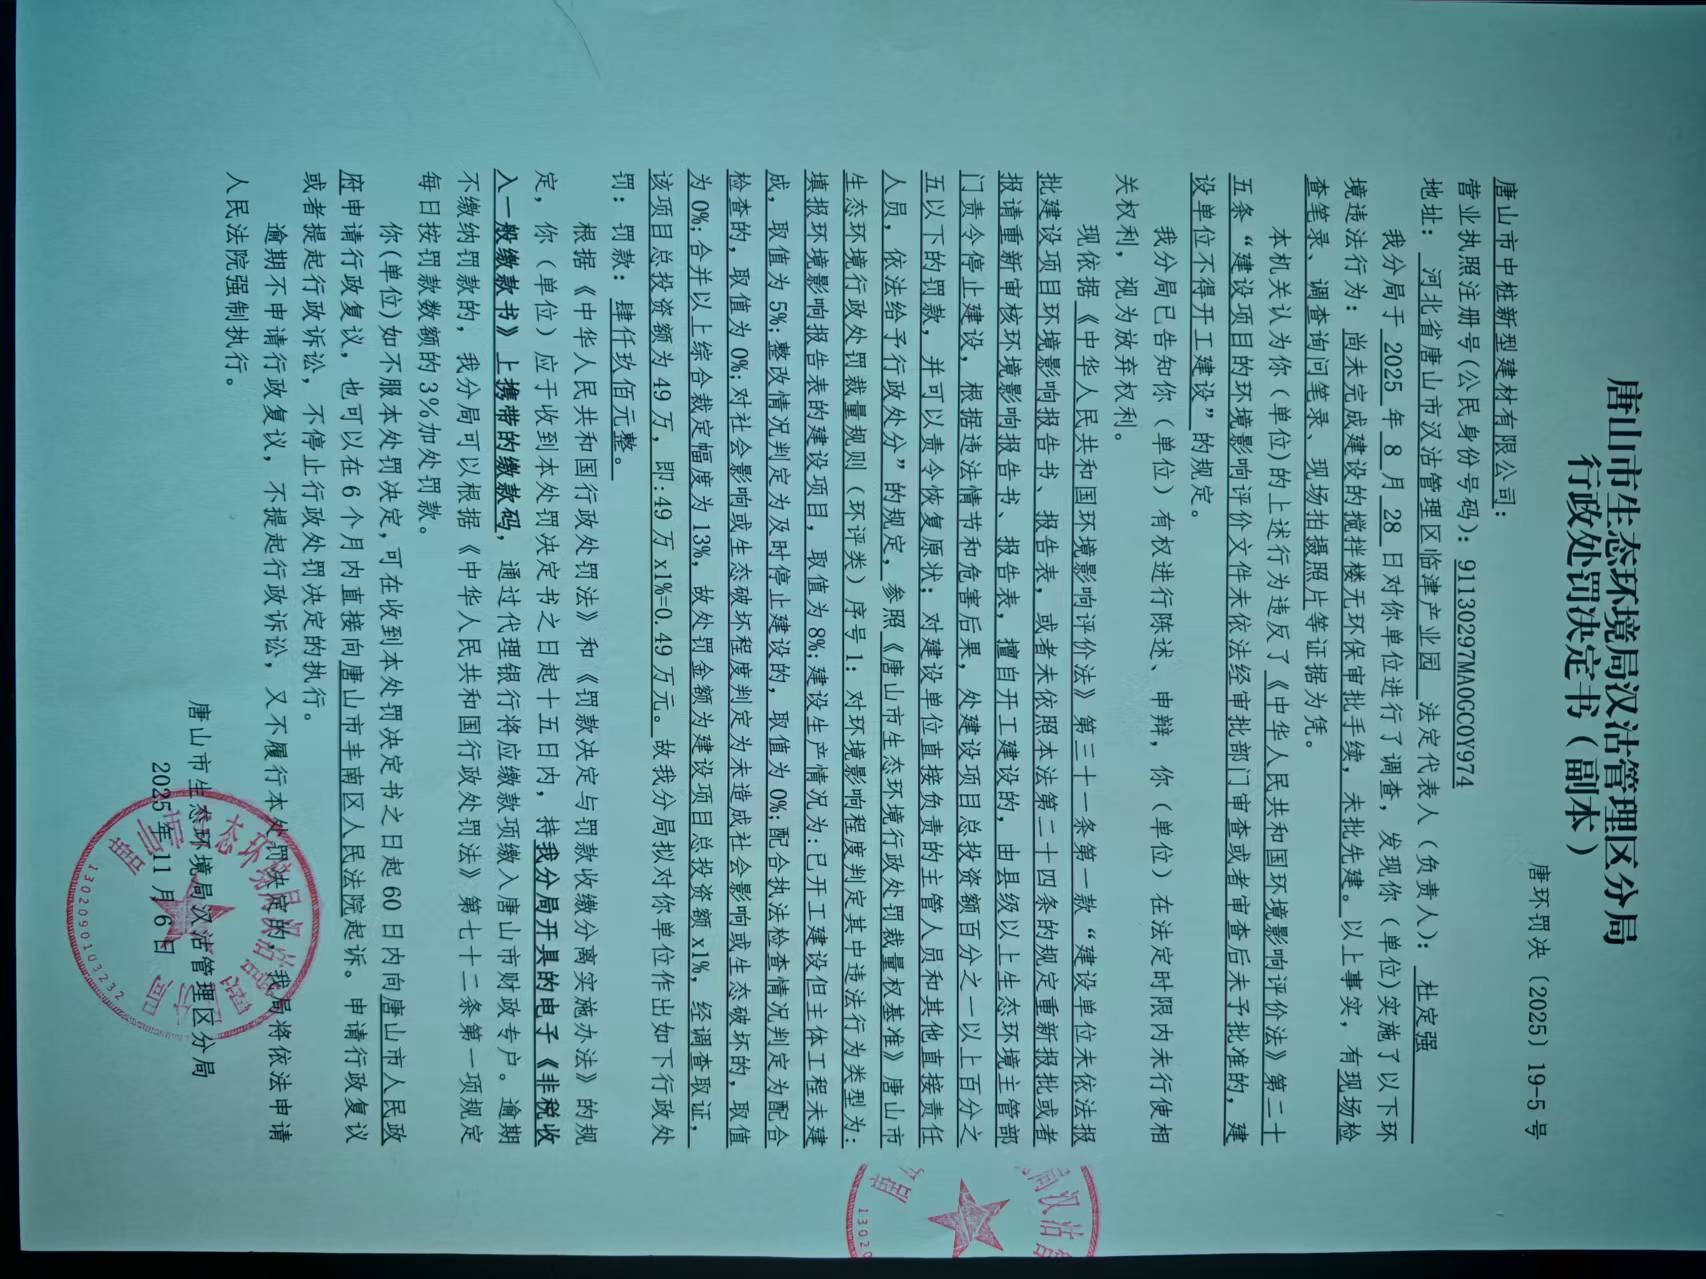 唐山市生态环境局汉沽管理区分局
行政处罚决定书（副本）
唐环罚决〔2025〕19-5号
唐山市中桩新型建材有限公司：
营业执照注册号(公民身份号码)：91130297MA0GC0Y974
地址： 河北省唐山市汉沽管理区临津产业园 法定代表人（负责人）： 杜定强
我分局于 2025 年 8 月 28 日对你单位进行了调查，发现你（单位)实施了以下环
境违法行为：尚未完成建设的搅拌楼无环保审批手续，未批先建。以上事实，有现场检
查笔录、调查询问笔录、现场拍摄照片等证据为凭。
本机关认为你（单位)的上述行为违反了《中华人民共和国环境影响评价法》第二十
五条“建设项目的环境影响评价文件未依法经审批部门审查或者审查后未予批准的，建
设单位不得开工建设”的规定。
我分局已告知你（单位）有权进行陈述、申辩，你（单位）在法定时限内未行使相
关权利，视为放弃权利。
现依据《中华人民共和国环境影响评价法》第三十一条第一款“建设单位未依法报
批建设项目环境影响报告书、报告表，或者未依照本法第二十四条的规定重新报批或者
报请重新审核环境影响报告书、报告表，擅自开工建设的，由县级以上生态环境主管部
门责令停止建设，根据违法情节和危害后果，处建设项目总投资额百分之一以上百分之
五以下的罚款，并可以责令恢复原状；对建设单位直接负责的主管人员和其他直接责任
人员，依法给予行政处分”的规定，参照《唐山市生态环境行政处罚裁量权基准》唐山市
生态环境行政处罚裁量规则（环评类）序号1：对环境影响程度判定其中违法行为类型为：
填报环境影响报告表的建设项目，取值为8%;建设生产情况为：已开工建设但主体工程未建
成，取值为5%;整改情况判定为及时停止建设的，取值为0%;配合执法检查情况判定为配合
检查的，取值为0%;对社会影响或生态破坏程度判定为未造成社会影响或生态破坏的，取值
为0%;合并以上综合裁定幅度为13%，故处罚金额为建设项目总投资额x1%，经调查取证，
该项目总投资额为49万，即:49万x1%=0.49万元。故我分局拟对你单位作出如下行政处
罚：罚款：肆仟玖佰元整。
根据《中华人民共和国行政处罚法》和《罚款决定与罚款收缴分离实施办法》的规
定，你（单位）应于收到本处罚决定书之日起十五日内，持我分局开具的电子《非税收
入一般缴款书》上携带的缴款码，通过代理银行将应缴款项缴入唐山市财政专户。逾期
不缴纳罚款的，我分局可以根据《中华人民共和国行政处罚法》第七十二条第一项规定
每日按罚款数额的3%加处罚款。
你(单位)如不服本处罚决定,可在收到本处罚决定书之日起60日内向唐山市人民政
府申请行政复议，也可以在6个月内直接向唐山市丰南区人民法院起诉。申请行政复议
或者提起行政诉讼，不停止行政处罚决定的执行。
逾期不申请行政复议，不提起行政诉讼，又不履行本处罚决定的，我局将依法申请
人民法院强制执行。
唐山市生态环境局汉沽管理区分局
2025年11月6日
1302090103232
局汉沽管
唐
1302